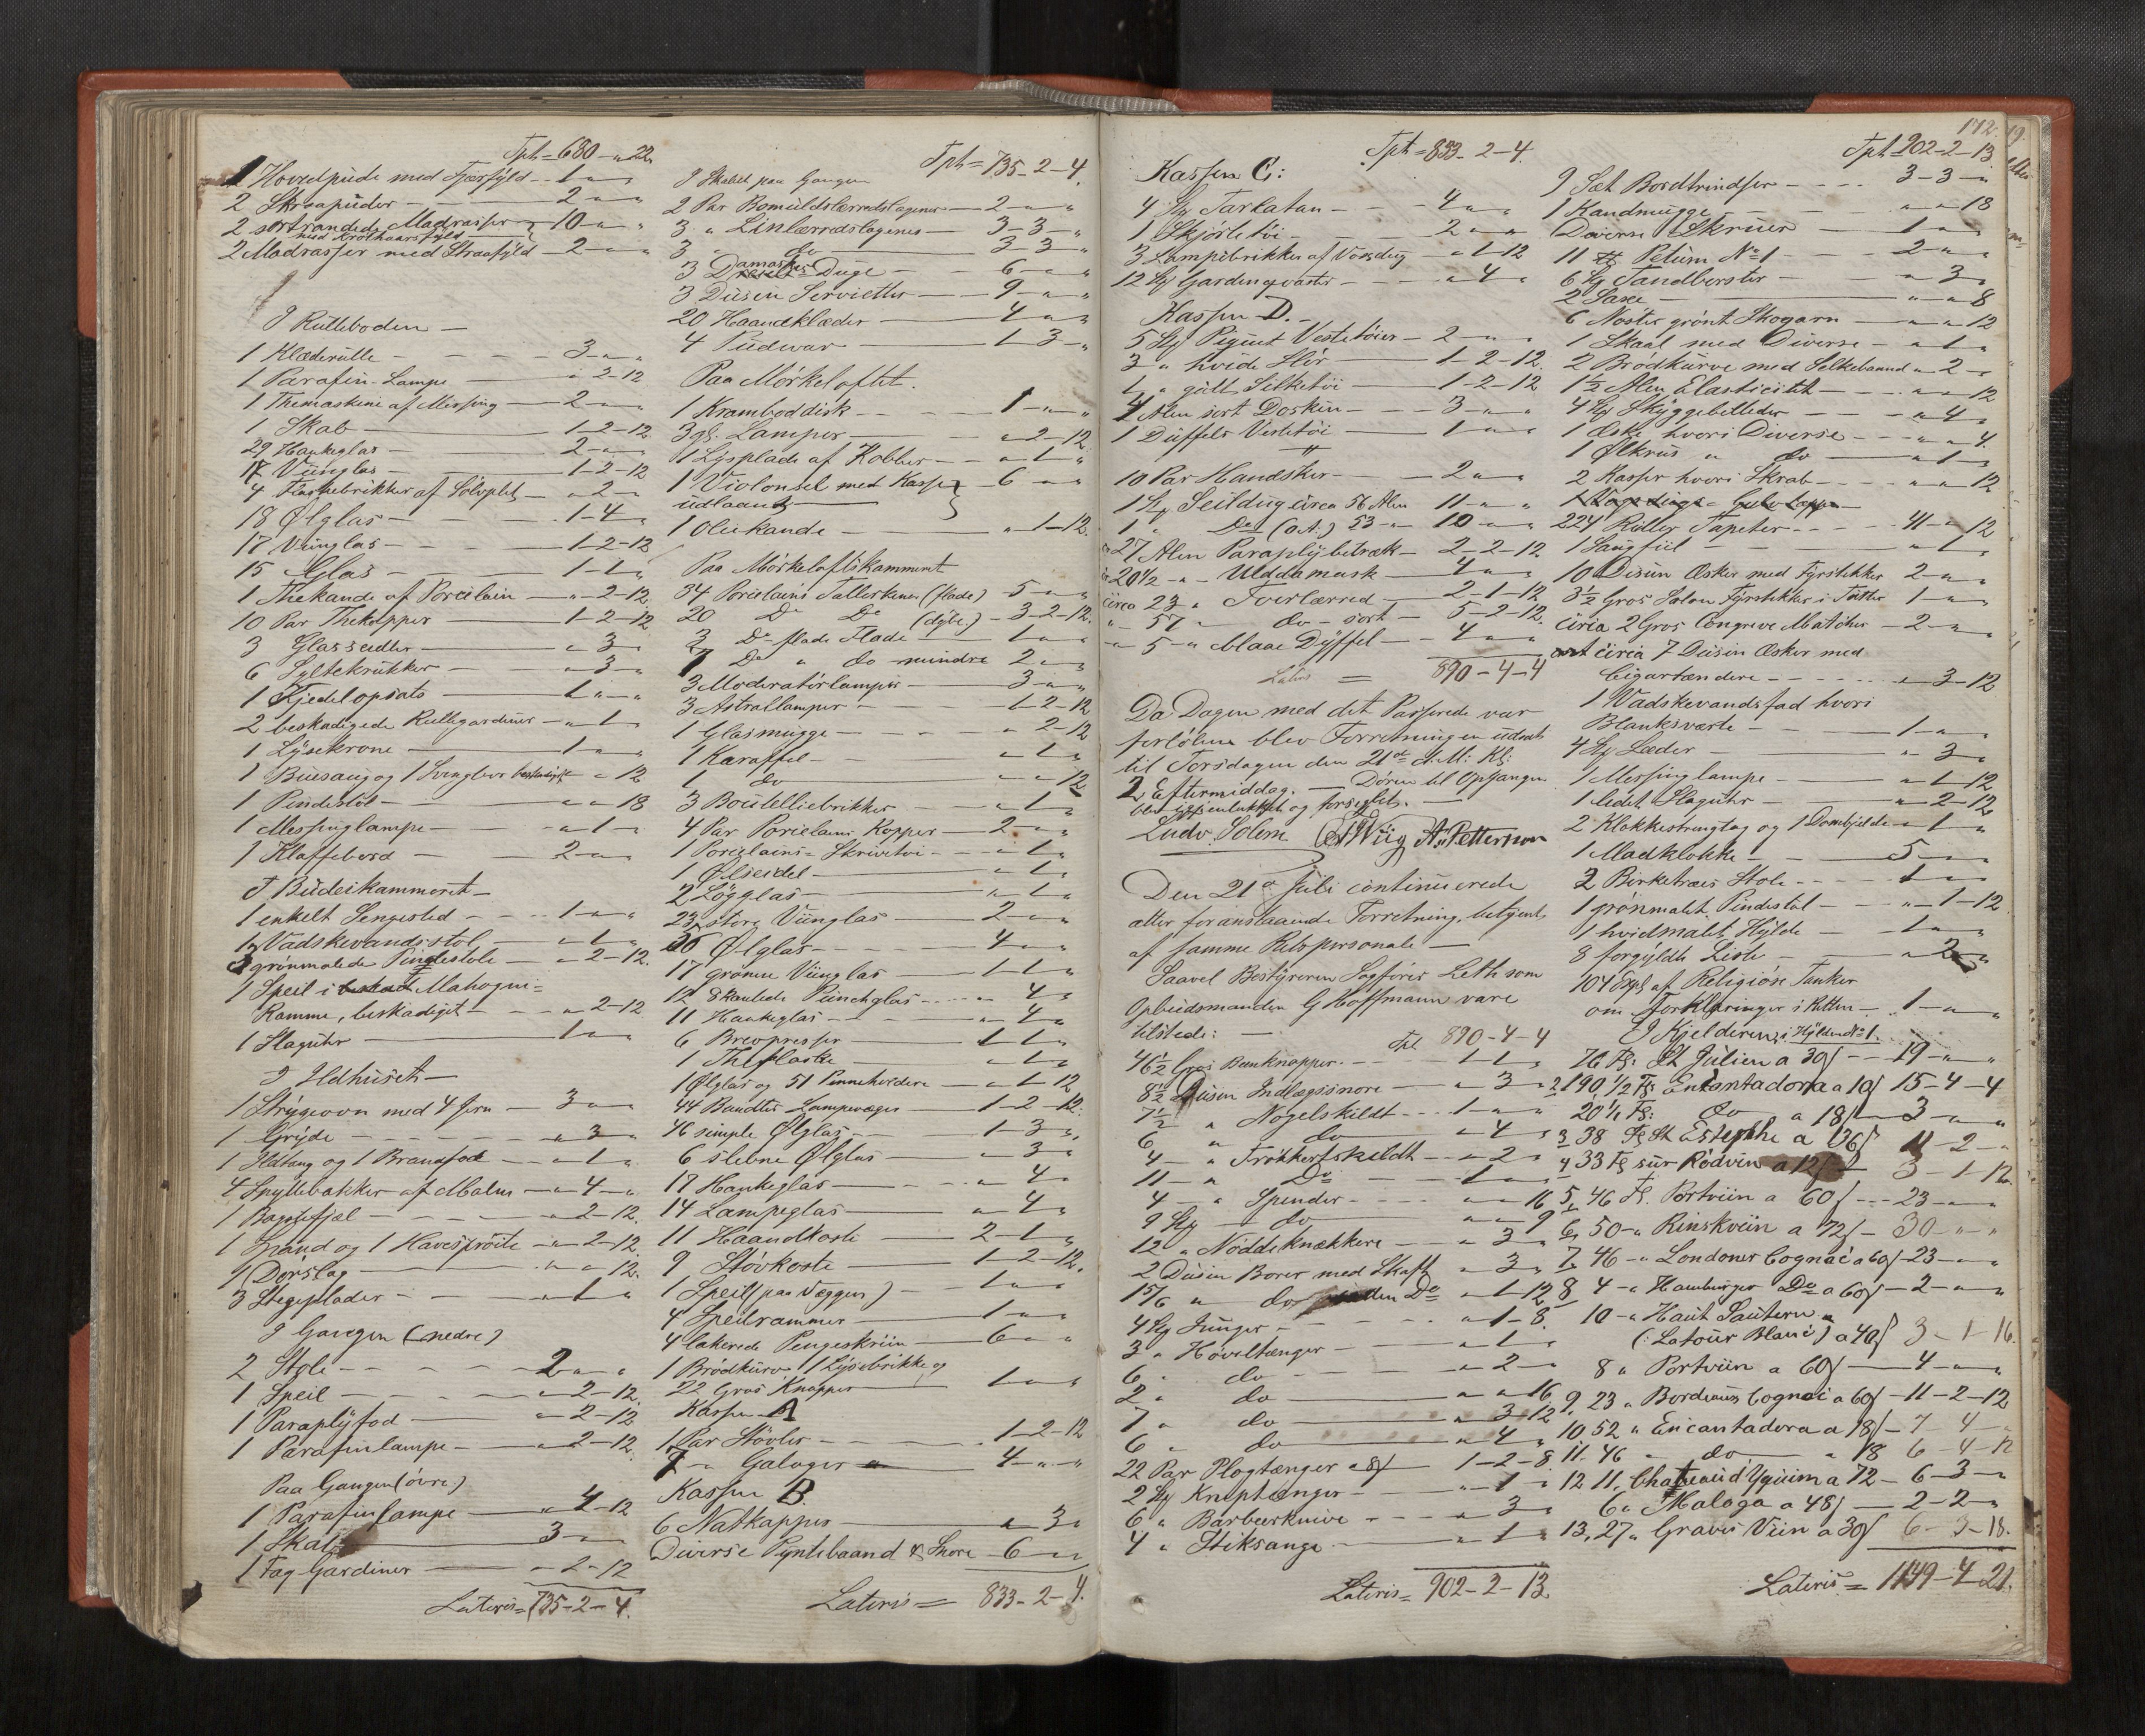 Tpt = 680 - " - 22
1 Hovedpude med Fjærfyld - 1 - " - "
2 Skraapuder - 2 - " - "
2 sortrandede Madrasser
med Krølhaarsfyld - 10 - " - "
2 Madrasser med Straafyld - 2 - " - "
I Rulleboden -
1 Klæderulle - 3 - " - "
1 Parafin-Lampe - " - 2 - 12
1 Themaskine af Messing - 2 - " - "
1 Skab - 1 - 2 - 12
29 Hankeglas - 2 - " - "
17 Viinglas - 1 - 2 - 12
4 Flaskebrikker af Sølvplet - " - 2 - "
18 Ølglas - 1 - 4 - "
17 Viinglas - 1 - 2 - 12
15 Glas - 1 - 1 - "
1 Thekande af Porcelain - " - 2 - 12
10 Par Thekopper - 1 - 2 - 12
3 Glasseidler - " - 3 - "
6 Syltekrukker - " - 3 - "
1 Kjedelopsats - 1 - " - "
2 beskadigede Rullegardiner - " - 1 - "
1 Lysekrone - 1 - " - "
1 Buesaug og 1 Svingbor beskadiget - " - " 12
1 Pindestol - " - " - 18
1 Messinglampe - " - 1 - "
1 Klaffebord - 2 - " - "
I Budeikammeret -
1 enkelt Sengested - 1 - " - "
1 Vadskevandsstol - " - 1 - "
3 grønmalede Pindestole - " - 2 - 12
1 Speil i Mahogni=
Ramme, beskadiget - " - 2 - 12
1 Slaguhr - 1 - " - "
I Ildhuset -
1 Strygeovn med 4 Jern - 3 - " - "
1 Gryde - " - 3 - "
1 Ildtang og 1 Brandfod - " - 1 - "
4 Spyttebakker af Malm - " - 4 - "
1 Bagstefjæl - " - 2 - 12
1 Spand og 1 Havesprøite - " - 2 - 12
1 Dørslag - " - " - 12
3 Stegeplader - " - 1 - "
I Gangen (nedre)
2 Stole - 2 - " - "
1 Speil - " - 2 - 12
1 Paraplyfod - " - 2 - 12
1 Parafinlampe - " - 2 - 12
Paa Gangen (øvre)
1 Parafinlampe - " - 4 - 12
1 Skab - 3 - " - "
1 Fag Gardiner - " - 2 - 12
Lateris = 735 - 2 - 4.
Tpt = 735 - 2 - 4.
I Skabet paa Gangen
2 Par Bomuldslærredslagener - 2 - " - "
3 " Linlærredslagener - 3 - 3 - "
3 " do - 3 - 3 - "
3 Damaskes Duge - 6 - " - "
3 Dusin Servietter - 9 - " - "
20 Haandklæder - 4 - " - "
4 Pudevar - 1 - 3 - "
Paa Mørkeloftet.
1 Kramboddisk - 1 - " - "
3 gl. Lamper - " - 2 - 12
1 Lysplade af Kobber - " - 1 - "
1 Violonsel med Kasse
udlaant - 6 - " - "
1 Oliekande - " - 1 - 12
Paa Mørkeloftskammeret
34 Porcelains Tallerkener (flade) - 5 - " - "
20 Do Do (dybe) - 3 - 2 - 12.
2 Do flade Fade - 1 - " - "
7 Do " do mindre 2 - " - "
3 Moderatørlamper - 3 - " - "
3 Astrallamper - 1 - 2 - 12
1 Glasmugge - " - 2 - 12
1 Karaffel - " - 1 - "
1 do - " - " - 12
3 Boutelliebrikker - " - 1 - "
4 Par Porcelains Kopper - 2 - " - "
1 Porcelains-Skrivetøi - " - 1 - "
1 Ølseidel - " - 1 - "
2 Løgglas - " - 1 - "
23 store Viinglas - 2 - " - "
30 Ølglas - 4 - " - "
17 grønne Viinglas - 1 - 1 - "
12 8kantede Punchglas - " - 4 - "
11 Hankeglas - " - 4 - "
6 Brevpresser - 1 - 1 - "
1 Theflaske - " - 1 - "
1 Ølglas og 51 Penneholdere - " - 1 - 12
44 Bundter Lampevæger - 1 - 2 - 12.
46 simple Ølglas - 1 - 3 - "
6 slebne Ølglas - " - 3 - "
17 Hankeglas - " - 4 - "
14 Lampeglas - " - 4 - "
11 Haandkoste - 2 - 1 - "
9 Støvkoste - 1 - 2 - 12.
1 Speil (paa Væggen) - 1 - " - "
4 Speilrammer - 1 - " - "
4 lakerede Pengeskriin - 6 - " - "
1 Brødkurv 1 Lysebrikke og
22 Gros Knapper - 1 - " - "
Kassen A
1 Par Støvler - 1 - 2 - 12
7 " Galoger - 4 - " - "
Kassen B.
6 Natkapper - " - 3 - "
Diverse Pyntebaand & Snore - 6 - " - "
Lateris = 833 - 2 - 4.
172.
Tpt = 833 - 2 - 4.
Kassen C:
4 St Tarlatan - 4 - " - "
1 Skjørtetøi - 2 - " - "
3 Lampebrikker af Voxdug - " - 1 - 12
12 St Gardinqvaster - " - 4 - "
Kassen D. -
5 St Piquet Vestetøier - 2 - " - "
3 " hvide Slør - 1 - 2 - 12.
1 " gult Silketøi - 1 - 2 - 12
4 Alen sort Doskin - 3 - " - "
1 Duffels Vestetøi - 1 - " - "
10 Par Handsker - 2 - " - "
1 St Seildug circa 56 Alen 11 - " - "
1 " Do (a.t.) 53 - " 10 - " - "
27 Alen Paraplybetræk - 2 - 2 - 12.
20 1/2 - " - Ulddamask - 4 - " - "
circa 23 " Foerlærred - 2 - 1 - 12
" 57 " do - sort - 5 - 2 - 12.
" 5 " blaae Dyffel - 4 - " - "
Lateris = 890 - 4 - 4
Da Dagen med det Passerede var
forløben blev Forretningen udsat
til Torsdagen den 21de d.M. Kl:
2 Eftermiddag. - Døren til Opgangen
blev igjenlukket og forseglet. -
Ludv. Solem Wiig A. Petterson
Den 21de Juli continuerede
atter foranstaaende Forretning, betjent
af samme Retspersonale -
Saavel Bestyreren Sagfører Leth som
Opbudsmanden G Hoffmann vare
tilstede: -
Tpt 890 - 4 - 4
46 1/2 Gros Beenknapper - 1 - 1 - "
8 1/2 Dusin Indlægssnore - " - 3 - "
7 1/2 " Nøgelskildt - 1 - " - "
6 " do - " - 4 - "
4 - " Trækkertskildt - " - 2 - "
11 - " Do - 1 - " - "
4 - " Spender - " - " - 16
9 St do - " - " - 9
12 " Nøddeknækkere - " - 3 - "
2 Dusin Borer med Skaft " - 3 - "
15/6 " do uden Do - " - 1 - 12
4 St Junger - " - 1 - 8.
3 " Høveltænger - " - 1 - "
6 " do - " - 2 - "
2 " do - " - " - 16
7 " do - " - 3 - 12
6 " do - " - 4 - "
22 Par Plogtænger a 8 - 1 - 2 - 8
2 St Kniptænger - " - 1 - "
6 " Barbeerknive - " - 3 - "
4 " Stiksauge - " - 1 - "
Lateris = 902 - 2 - 13.
Tpt = 902 - 2 - 13
9 Sæt Bordtrindser - 3 - 3 - "
1 Kandmugge - " - " - 18
Diverse Skruer - 1 - " - "
11 # Petum No 1 - 2 - " - "
6 St Tandbørster - " - 3 - "
2 Saxe - " - " - 8
6 Nøster grønt Skogarn - " - " - 12
1 Skaal med Diverse - " - 1 - "
2 Brødkurve med Silkebaand " - 2 - "
1 1/2 Alen Elasticitet - " - " - 12
4 St Skyggebilleder - " - 4 - "
1 Æske hvori Diverse - " - " - 4.
1 Ølkrus " do - " - 1 - "
2 Kasser hvori Skrab - " - " - 12
224 Ruller Tapeter - 41 - " - 12
1 Saugfiil - " - 1 - "
10 Dusin Æsker med Fyrstikker 2 - " - "
3 1/2 Gros Salon Fyrstikker i Futter 1 - " - "
circa 2 Gros Congreve Matcher - 2 - " - "
circa 7 Dusin Æsker med
Cigartændere - " - 3 - 12
1 Vadskevandsfad hvori
Blanksværte - 1 - " - "
4 St Læder - " - 3 - "
1 Messinglampe - " - 1 - 12
1 lidet Slaguhr - " - 2 - 12
2 Klokkestrengtag og 1 Dombjelde " - 1 - "
1 Madklokke - 5 - " - "
2 Birketræes Stole - 1 - " - "
1 grønmalet Pindestol - " - 1 - 12
1 hvidmalet Hylde - 1 - " - "
8 forgyldte Lister - " - 2 - "
104 Expl af Religiøse Tanker
om Forklaringer i Retten - 1 - " - "
I Kjelderen, i Hylden No 1.
76 Fl: St Julien a 30 - 19 - " - "
2 190 1/2 Fl: Encantadora a 10 15 - 4 - 4
20 1/1 Fl: do a 18 - 3 - " - "
3 38 Fl St Estephe a 36 11 - 2 - "
4 33 Fl sur Rødvin a 12 3 - 1 - 12
5, 46 Fl. Portviin a 60 - 23 - " - "
6, 50 - " Rinskviin a 72 - 30 - " - "
7, 46 - " Londoner Cognac a 60 - 23 - " - "
8 4 - " Hamburger Do a 60 - 2 - " - "
10 - " Haut Sauterne
(: Latour Blanc) a 40 3 - 1 - 16.
8 " Portviin a 60 - 4 - " - "
9, 23 " Bordeaux Cognac a 60 - 11 - 2 - 12
10 52 " Encantadora a 18 - 7 - 4 - "
11. 46 " do " 18 6 - 4 - 12
12 11, Chateau d'Yquim a 72 - 6 - 3 - "
6 " Malaga a 48 - 2 - 2 - "
13, 27 " Graves Viin a 30 6 - 3 - 18.
Lateris = 1149 - 4 - 21.